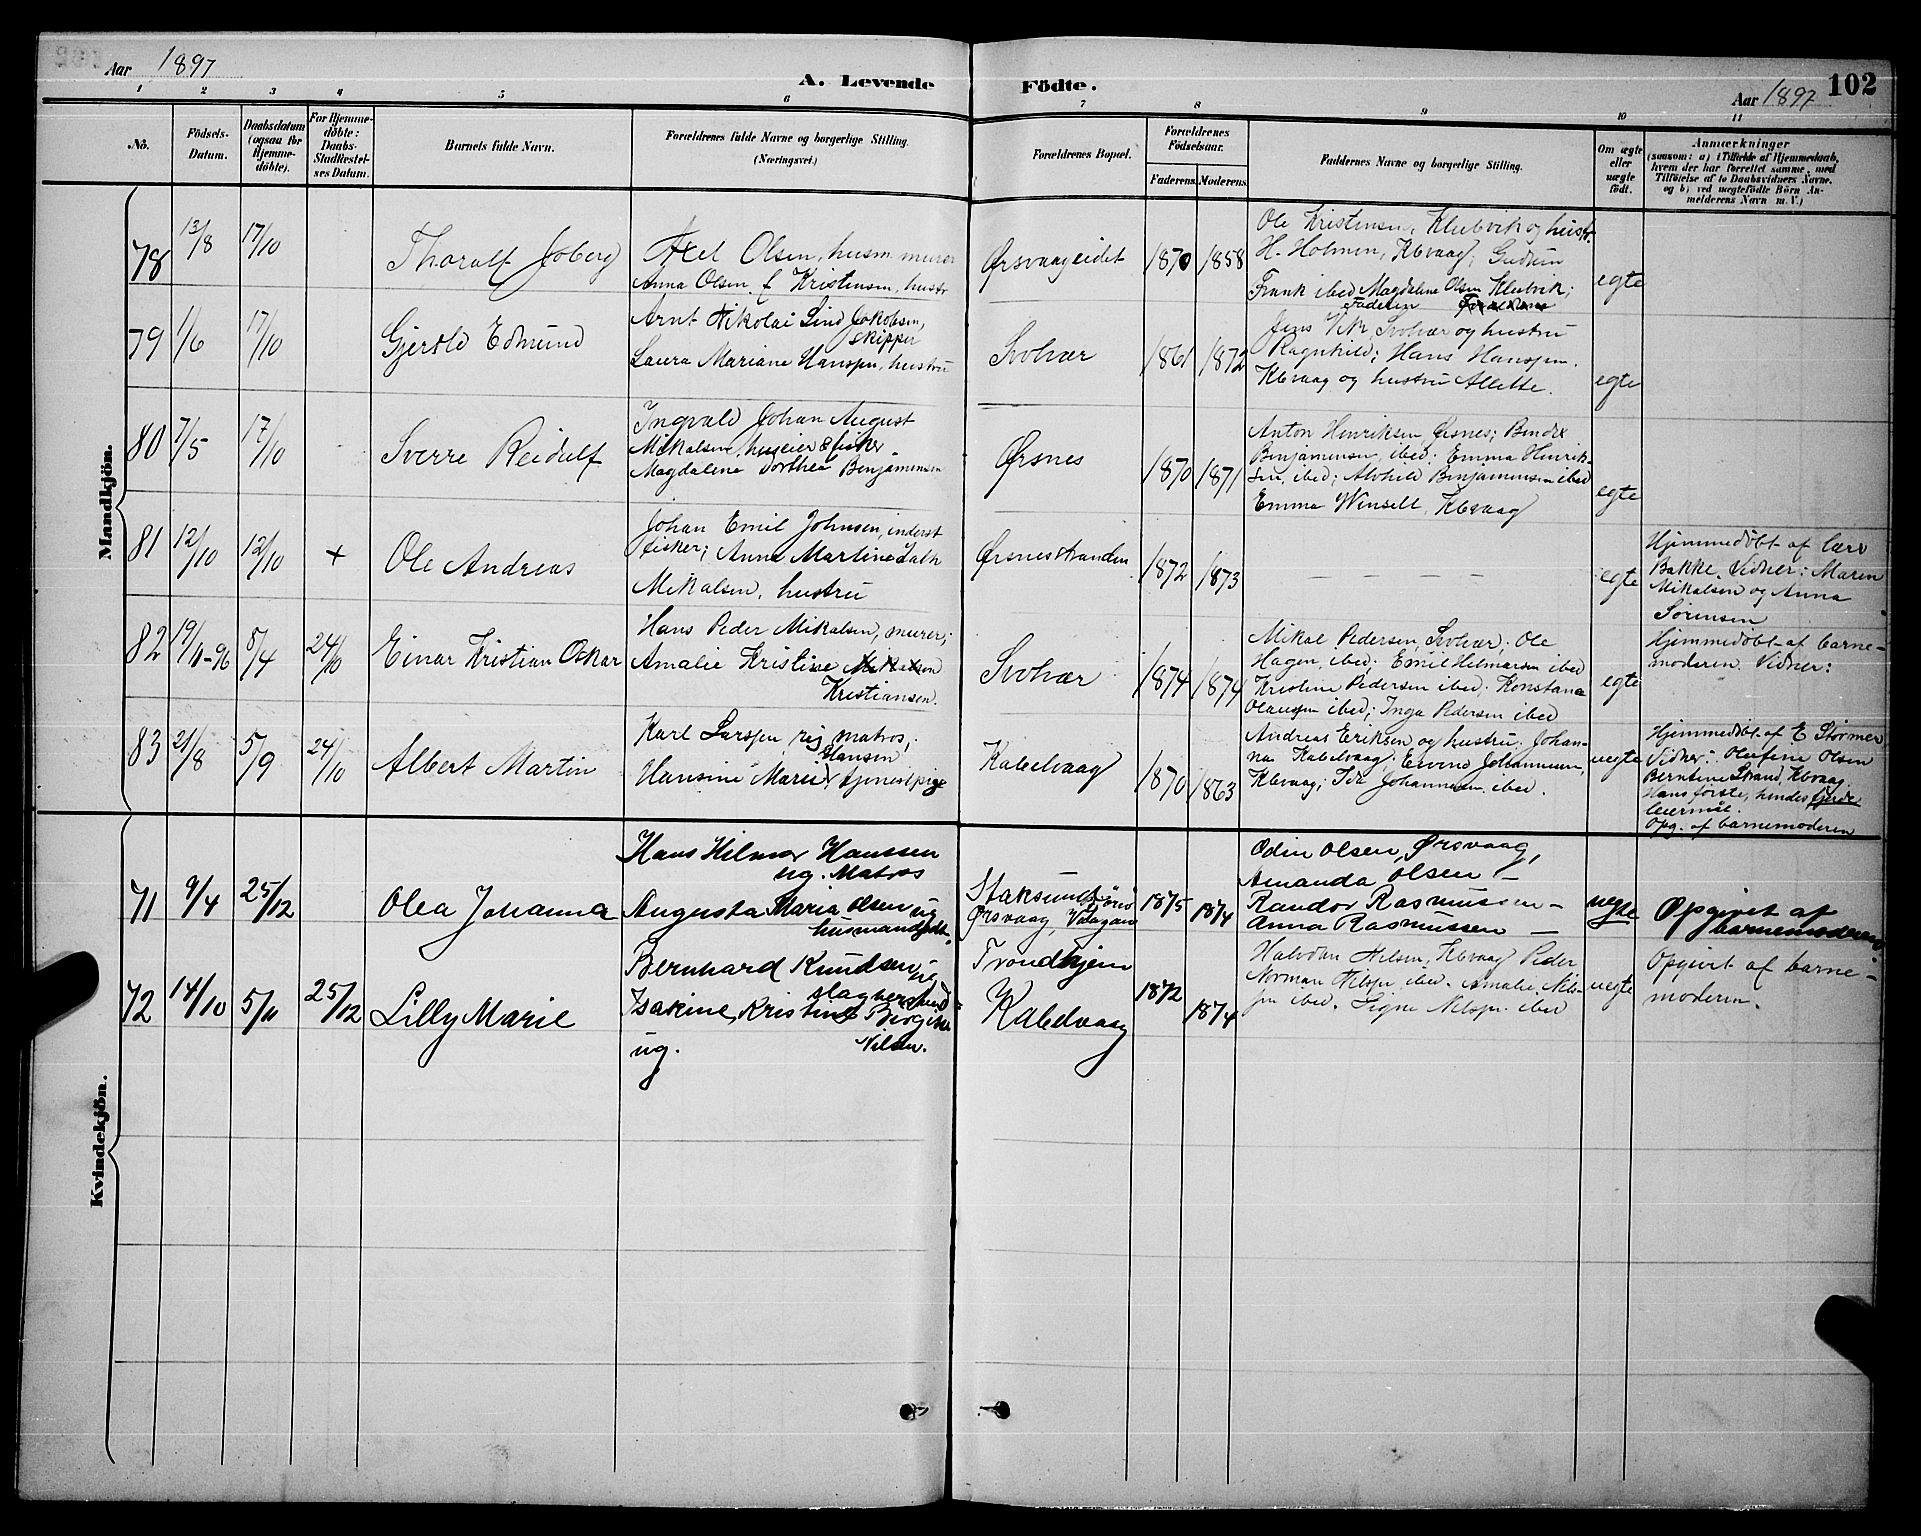 Aar 1897
A. Levende Födte.
Aar 1897 102
1 2 3 4 5 6 7 8 9 10 11
No.
Födsels-
Datum.
Daabsdatum
(ogsaa for
Hjemme-
döbte).
For Hjemme-
døbte:
Daabs-
Stadfæstel-
ses Datum.
Barnets fulde Navn.
Forældrenes fulde Navne og borgerlige Stilling.
(Næringsvei.)
Forældrenes Bopæl.
Forældrenes
Födselsaar.
Faderens. Moderens.
Faddernes Navne og borgerlige Stilling.
Om ægte
eller
uægte
födt.
Anmærkninger
(saasom: a) i Tilfælde af Hjemmedaab,
hvem der har forrettet samme, med
Tilföielse af to Daabsvidners Navne,
og b) ved uægtefödte Börn An-
melderens Navn m. V.)
Mandkjön.
78 13/8 17/10
Thoralf Joberg
Axel Olsen, husm. murer
Anna Olsen f. Kristensen, hustr
Ørsvaageidet
1870 1858
Ole Kristensen, Kleivik og hustr.
H. Holmen, Kbvaag; Gudrun
Frank ibed Magdalene Olsen Kleivik;
Faderen
egte
79 1/6 17/10
Gjerold Edmund
Arnt Nikolai Lind Jakobsen,
skipper
Laura Mariane Hanssen, hustru
Svolvær
1861 1872
Jens Vik, Svolvær og hustru
Ragnhild; Hans Hanssen
Kbvaag og hustru Allette.
egte
80 7/5 17/10
Sverre Reidulf
Ingvald Johan August
Mikalsen, huseier & fisker
Magdalena Dorthea Benjaminsen
Ørsnes
1870 1871
Anton Henriksen, Ørsnes; Bendix
Benjaminsen, ibed; Emma Henrik-
sen, ibed; Alvhild Benjaminsen ibed
Emma Winselt, Kbvaag
egte
81 12/10 12/10 +
Ole Andreas
Johan Emil Johnsen, inderst
fisker; Anna Martine
Mikalsen, hustru
Ørsnesstranden
1872 1873
— — — —
egte
Hjemmedøbt af lærer
Bakke. Vidner: Maren
Mikalsen og Anna
Sørensen
82 19/11-96 8/4 24/10
Einar Kristian Oskar
Hans Peder Mikalsen, murer;
Amalie Kristine Mikalsen
Kristiansen.
Svolvær
1874 1874
Mikal Pedersen, Svolvær; Ole
Hagen, ibed; Emil Hilmarsen ibed
Kristine Pedersen ibed. Konstanse
Olaussen ibed; Inga Pedersen ibed
egte
Hjemmedøbt af barne-
moderen. Vidner:
83 21/8 5/9 24/10
Albert Martin
Karl Larssen, matros;
Hansen
Hansine Marie, tjenestpige
Kabelvaag
1870 1863
Andreas Eriksen og hustru Johan-
na Kabelvaag. Eivind Johannesen,
Kbvaag; Ida Johannesen ibed.
uegte
Hjemmedøbt af E Størmer
Vidner: Olefine Olsen
Berntine Strand, Kbvaag
Hans første, hindes fjerde
leiermål.
Opg. af barnemoderen
Kvindekjön.
71 9/4 25/12
Olea Johanna
Hans Hilmar Hanssen
ug. Matros
Augusta Maria Olsen ug
husmandsdt.
Ørsvaag, Vaagan
1875 1874
Odin Olsen, Ørsvaag,
Amanda Olsen —
Randor Rasmussen —
Anna Rasmussen —
uegte
Opgivet af
barnemoderen
72 14/10 5/11 25/12
Lilly Marie
Bernhard Knudsen ug
slagversvend
Isakine Kristine Birgitte
ug. Nilsen.
Trondhjem
Kabelvaag
1872 1874
Halvdan Nilsen, Kbvaag Peder
Norman Nilssen ibed. Amalie Nils-
sen ibed. Signe Nilssen ibed
uegte
Opgivet af barne-
moderen.